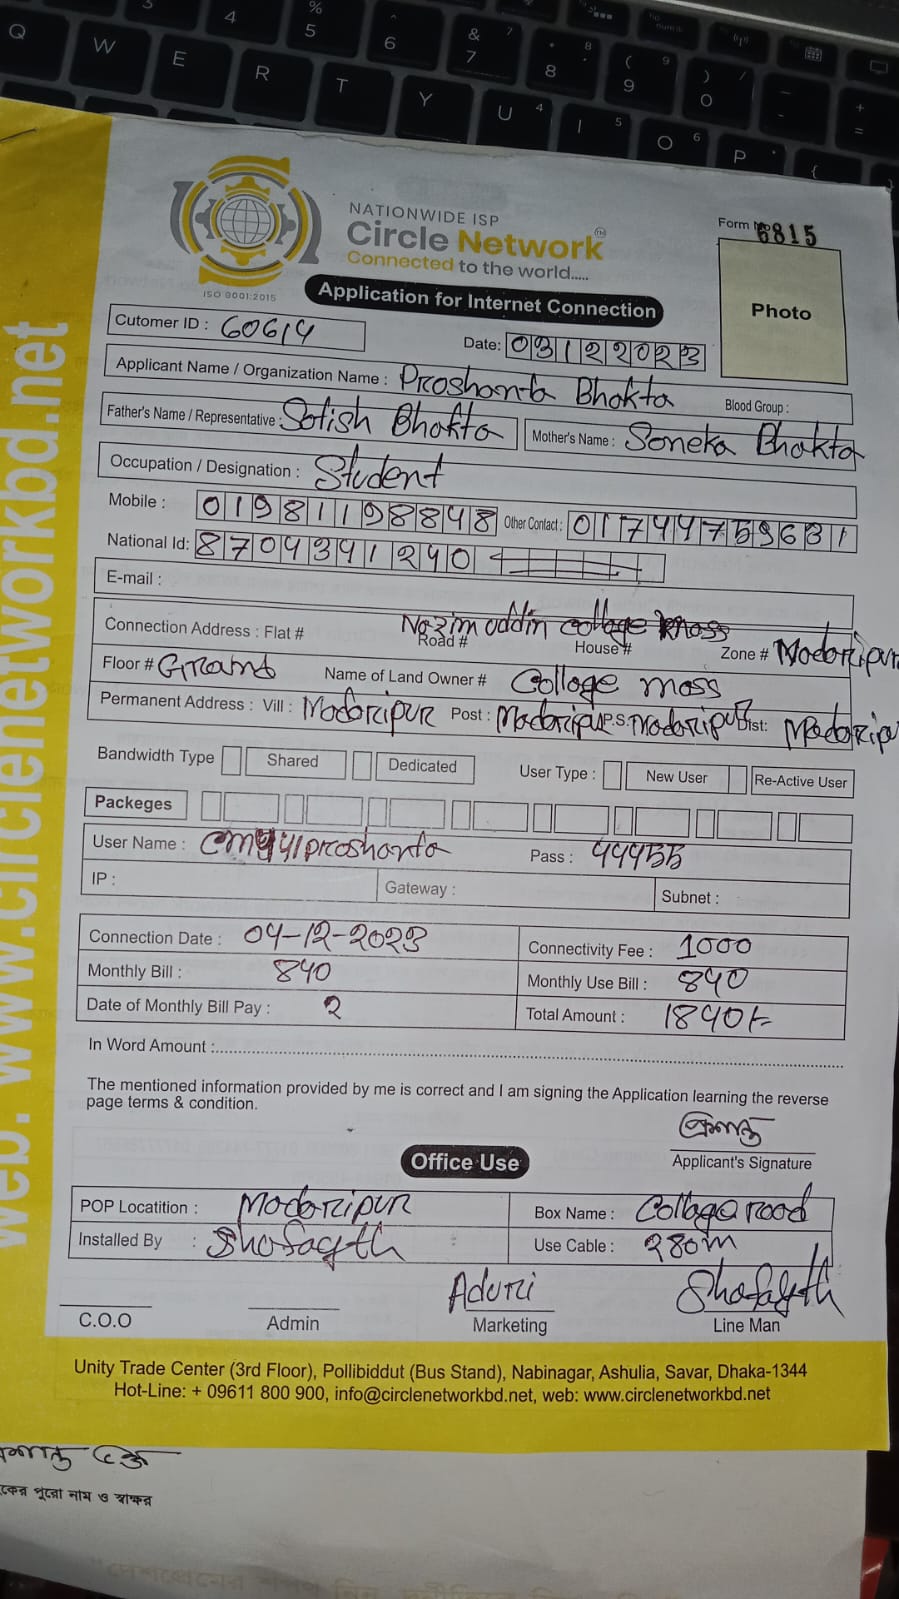 NATIONWIDE ISP
Circle Network
Connected to the world.....
ISO 9001:2015
Form No 6815
Photo
Application for Internet Connection
Cutomer ID : 60614
Date: 03122023
Applicant Name / Organization Name : Proshanta Bhakta Blood Group :
Father's Name / Representative : Sotish Bhakta Mother's Name : Soneka Bhakta
Occupation / Designation : Student
Mobile : 01981198848 Other Contact : 01744759631
National Id: 8704391240
E-mail :
Connection Address : Flat # Nazim uddin college mass Road # House # Zone # Madaripur
Floor # Grand Name of Land Owner # College mass
Permanent Address : Vill : Madaripur Post : Madaripur P.S. Madaripur Dist: Madaripur
Bandwidth Type Shared Dedicated User Type : New User Re-Active User
Packeges
User Name : proshanta Pass : 44455
IP : Gateway : Subnet :
Connection Date : 04-12-2023 Connectivity Fee : 1000
Monthly Bill : 840 Monthly Use Bill : 840
Date of Monthly Bill Pay : 2 Total Amount : 1840/-
In Word Amount :
The mentioned information provided by me is correct and I am signing the Application learning the reverse
page terms & condition.
প্রশান্ত
Applicant's Signature
Office Use
POP Locatition : Madaripur Box Name : College road
Installed By : Shofayth Use Cable : 280m
Aduri Shofayth
C.O.O Admin Marketing Line Man
Unity Trade Center (3rd Floor), Pollibiddut (Bus Stand), Nabinagar, Ashulia, Savar, Dhaka-1344
Hot-Line: + 09611 800 900, info@circlenetworkbd.net, web: www.circlenetworkbd.net
web: www.circlenetworkbd.net
পুরো নাম ও স্বাক্ষর